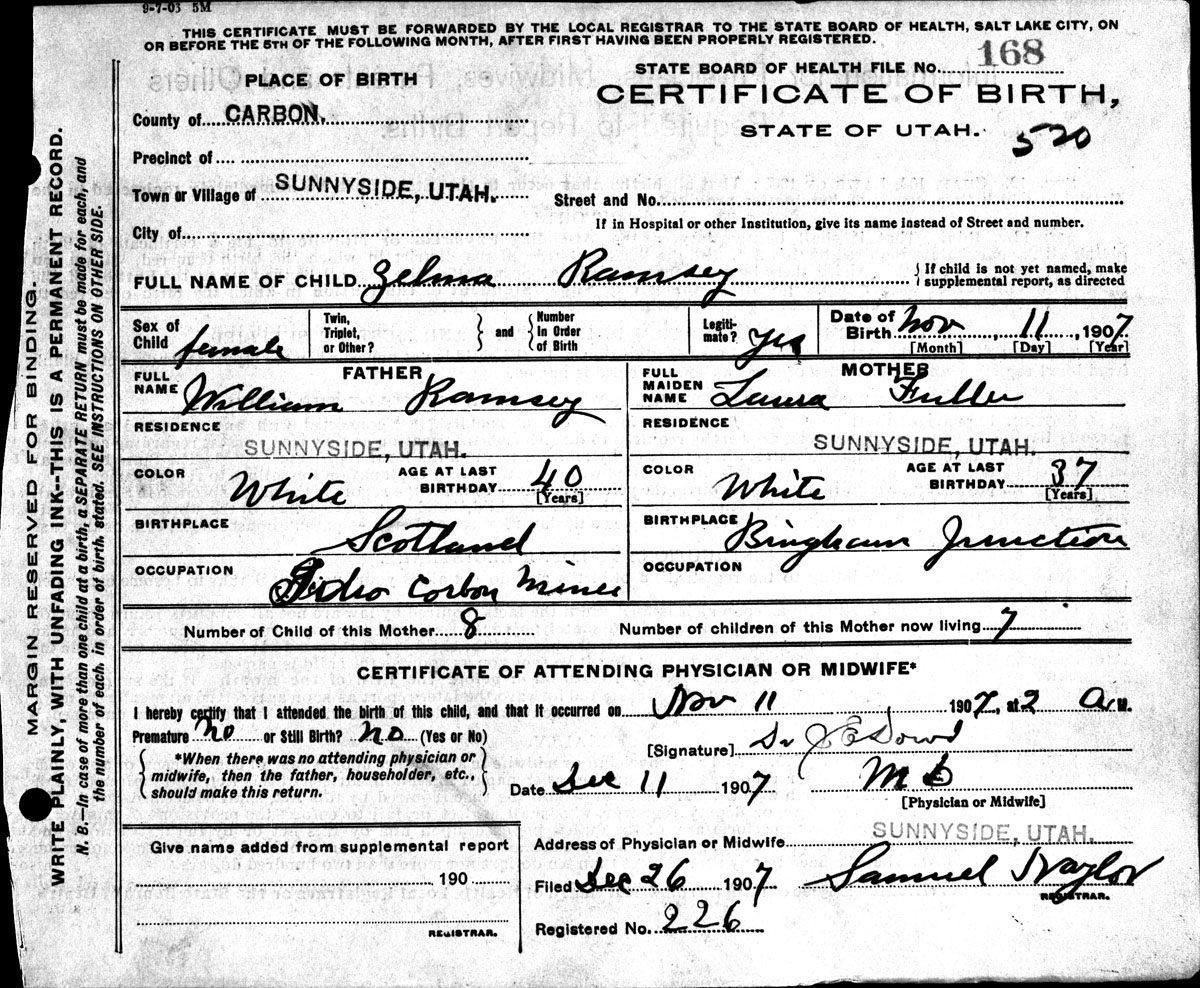 9-7-03 5M
THIS CERTIFICATE MUST BE FORWARDED BY THE LOCAL REGISTRAR TO THE STATE BOARD OF HEALTH, SALT LAKE CITY, ON
OR BEFORE THE 5TH OF THE FOLLOWING MONTH, AFTER FIRST HAVING BEEN PROPERLY REGISTERED.
STATE BOARD OF HEALTH FILE No. 168
CERTIFICATE OF BIRTH,
STATE OF UTAH.
520
PLACE OF BIRTH
County of CARBON.
Precinct of
Town or Village of SUNNYSIDE, UTAH.
Street and No.
City of
If in Hospital or other Institution, give its name instead of Street and number.
FULL NAME OF CHILD Zelma Ramsey
If child is not yet named, make
supplemental report, as directed
Sex of Child female
Twin, Triplet, or Other?
and
Number In Order of Birth
Legiti- mate? Yes
Date of Birth Nov 11, 1907
[Month] [Day] [Year]
FATHER
FULL NAME William Ramsey
RESIDENCE
SUNNYSIDE, UTAH.
COLOR White
AGE AT LAST BIRTHDAY 40
[Years]
BIRTHPLACE
Scotland
OCCUPATION
Corbon Miner
MOTHER
FULL MAIDEN NAME Laura Fuller
RESIDENCE
SUNNYSIDE, UTAH.
COLOR White
AGE AT LAST BIRTHDAY 37
[Years]
BIRTHPLACE Bingham Junction
OCCUPATION
Number of Child of this Mother 8
Number of children of this Mother now living 7
CERTIFICATE OF ATTENDING PHYSICIAN OR MIDWIFE*
I hereby certify that I attended the birth of this child, and that it occurred on Nov 11 1907, at 2 A.M.
Premature No or Still Birth? No (Yes or No)
*When there was no attending physician or
midwife, then the father, householder, etc.,
should make this return.
[Signature] Dr J E Dowd
Date Dec 11 1907
M D
[Physician or Midwife]
Give name added from supplemental report
190
REGISTRAR.
Address of Physician or Midwife SUNNYSIDE, UTAH.
Filed Dec 26 1907 Samuel Naylor
REGISTRAR.
Registered No. 226
MARGIN RESERVED FOR BINDING.
WRITE PLAINLY, WITH UNFADING INK--THIS IS A PERMANENT RECORD.
N. B.—In case of more than one child at a birth, a SEPARATE RETURN must be made for each, and
the number of each, in order of birth, stated. SEE INSTRUCTIONS ON OTHER SIDE.